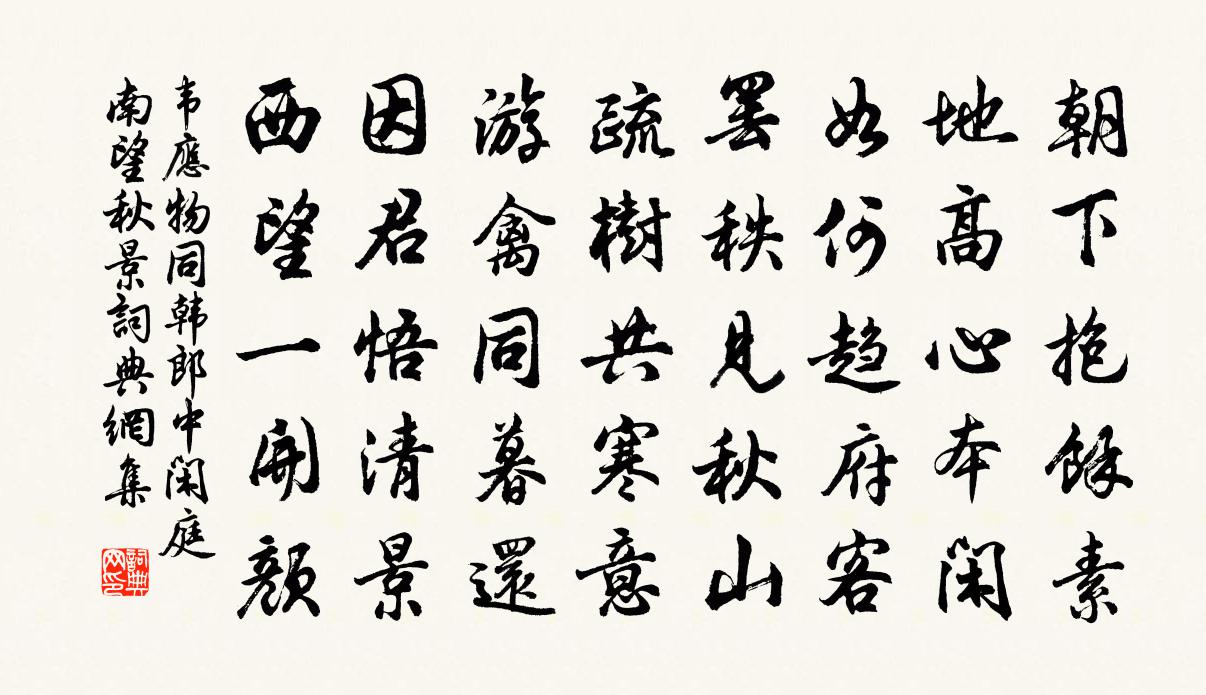 朝下抱餘素
地高心本閑
如何趨府客
罷秩見秋山
疏樹共寒意
游禽同暮還
因君悟清景
西望一開顏
韦應物同韩郎中閑庭
南望秋景詞典網集
詞典
网印